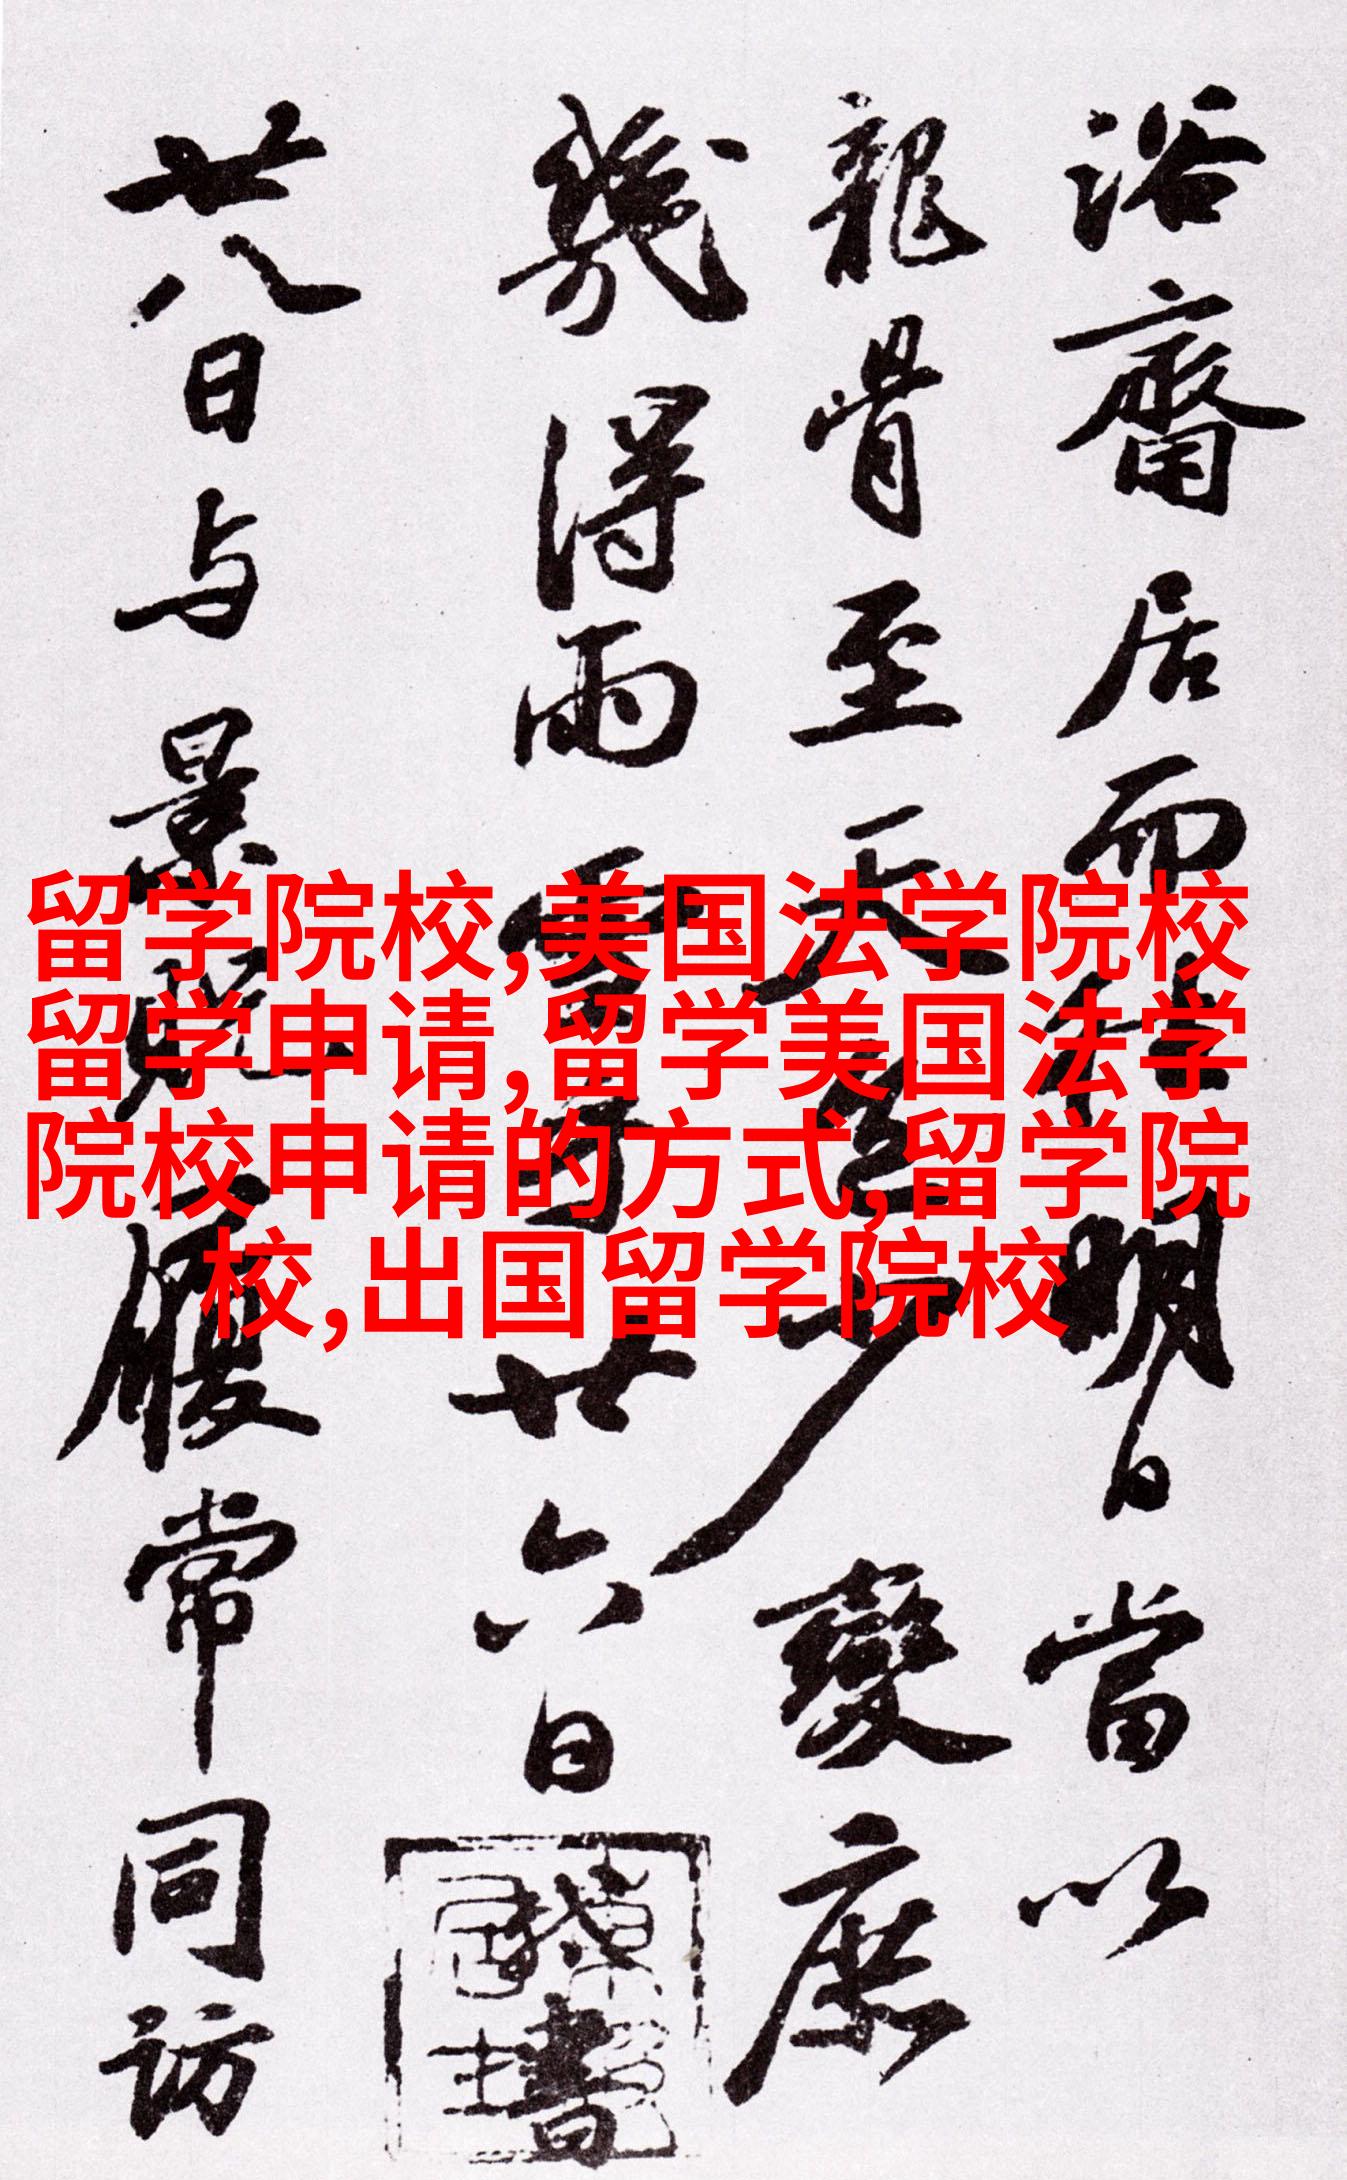 浴齋居而禱明日當以
龍骨至天慶少變庶
幾得雨雪子廿六日
書
廿八日与景貺履常同訪
留学院校,美国法学院校
留学申请,留学美国法学
院校申请的方式,留学院
校,出国留学院校